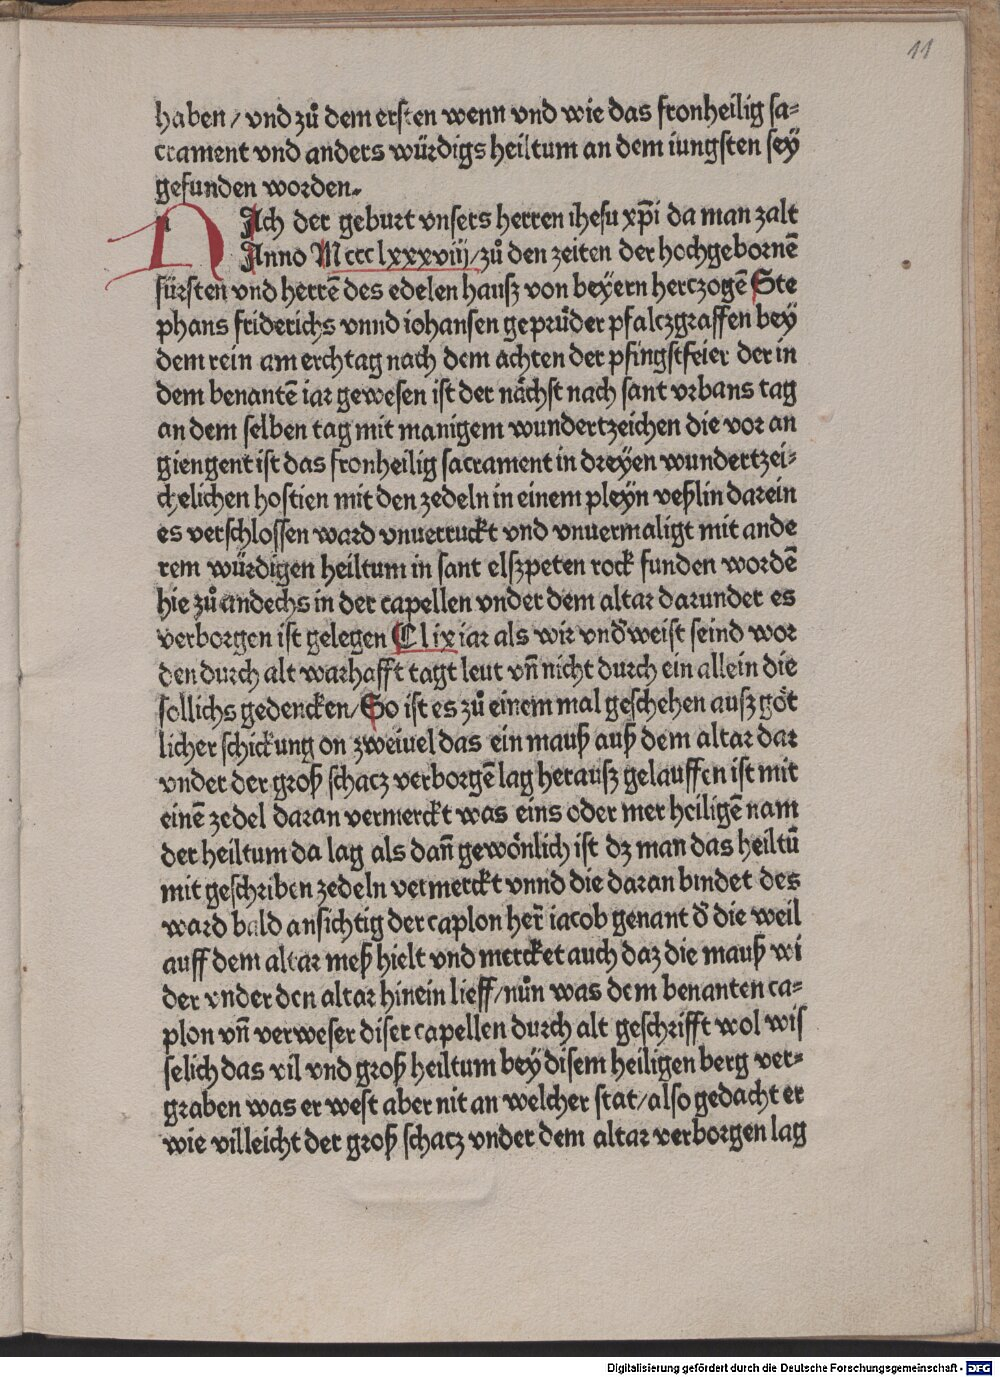 11
haben / vnd zů dem ersten wenn vnd wie das fronheilig sa=
crament vnd anders würdigs heiltum an dem iungsten seÿ
gefunden worden.
NAch der geburt vnsers herren ihesu xp̄i da man zalt
Anno Mccclxxxviii / zů den zeiten der hochgebornē
fürsten vnd herrē des edelen hausz von beÿern herczogē Ste
phans friderichs vnnd iohansen geprůder pfalczgraffen beÿ
dem rein am erchtag nach dem achten der pfingstfeier der in
dem benantē iar gewesen ist der nächst nach sant vrbans tag
an dem selben tag mit manigem wundertzeichen die vor an
giengent ist das fronheilig sacrament in dreÿen wundertzei=
chelichen hostien mit den zedeln in einem pleÿn veßlin darein
es verschlossen ward vnuerruckt vnd vnuermaligt mit ande
rem würdigen heiltum in sant elszpeten rock funden wordē
hie zů andechs in der capellen vnder dem altar darunder es
verborgen ist gelegen Clix iar als wir vnd̕weist seind wor
den durch alt warhafft tagt leut vn̄ nicht durch ein allein die
sollichs gedencken / So ist es zů einem mal geschehen ausz göt
licher schickung on zweiuel das ein mauß auß dem altar dar
vnder der groß schacz verborgē lag herausz gelauffen ist mit
einē zedel daran vermerckt was eins oder mer heiligē nam
der heiltum da lag als dan̄ gewönlich ist dz man das heiltū
mit geschriben zedeln vermerckt vnnd die daran bindet des
ward bald ansichtig der caplon her̄ iacob genant d̕ die weil
auff dem altar meß hielt vnd mercket auch daz die mauß wi
der vnder den altar hinein lieff / nůn was dem benanten ca=
plon vn̄ verweser diser capellen durch alt geschrifft wol wis
selich das vil vnd groß heiltum beÿ disem heiligen berg ver=
graben was er west aber nit an welcher stat / also gedacht er
wie villeicht der groß schacz vnder dem altar verborgen lag
Digitalisierung gefördert durch die Deutsche Forschungsgemeinschaft - DFG